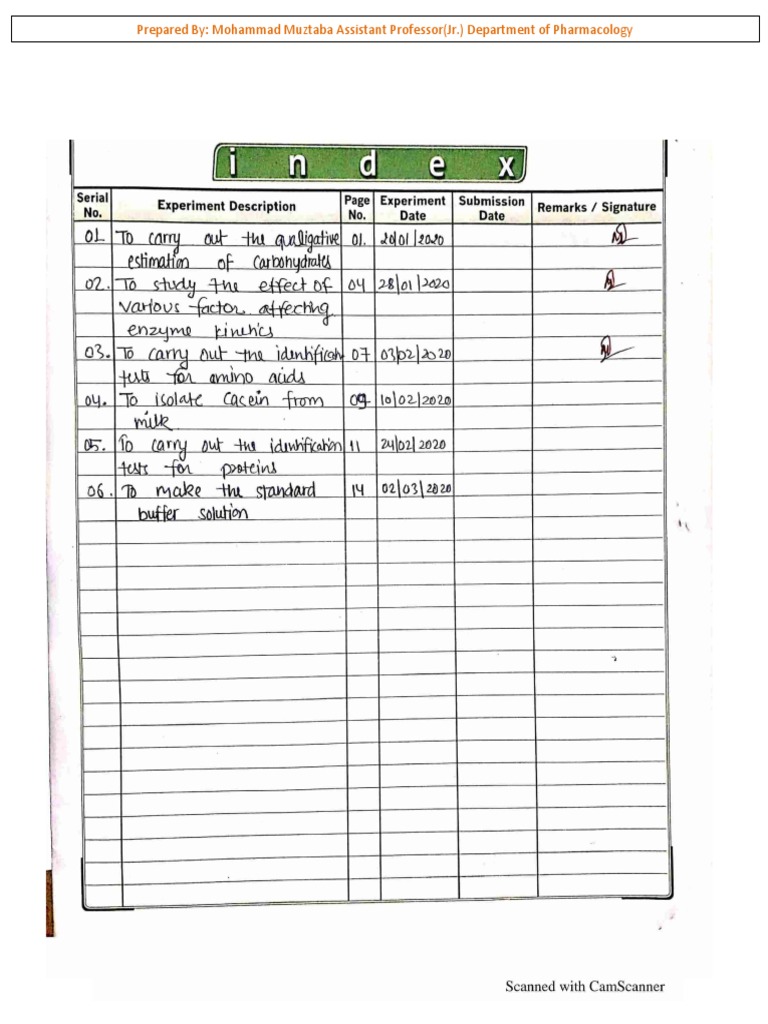 Prepared By: Mohammad Muztaba Assistant Professor(Jr.) Department of Pharmacology
index
Serial No. Experiment Description Page No. Experiment Date Submission Date Remarks / Signature
01 To carry out the qualigative 01. 20/01/2020
estimation of Carbohydrates
02. To study the effect of 04 28/01/2020
various factor affecting
enzyme kinetics
03. To carry out the identificatn 07 03/02/2020
tests for amino acids
04. To isolate Cacein from 09 10/02/2020
milk
05. To carry out the identification 11 24/02/2020
tests for proteins
06. To make the standard 14 02/03/2020
buffer solution
Scanned with CamScanner